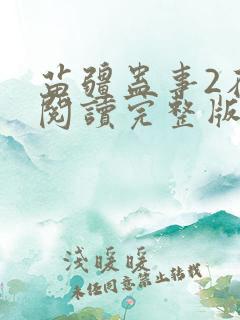 苗疆蛊事2在
閱讀完整版
淺暖暖
未经同意禁止转载